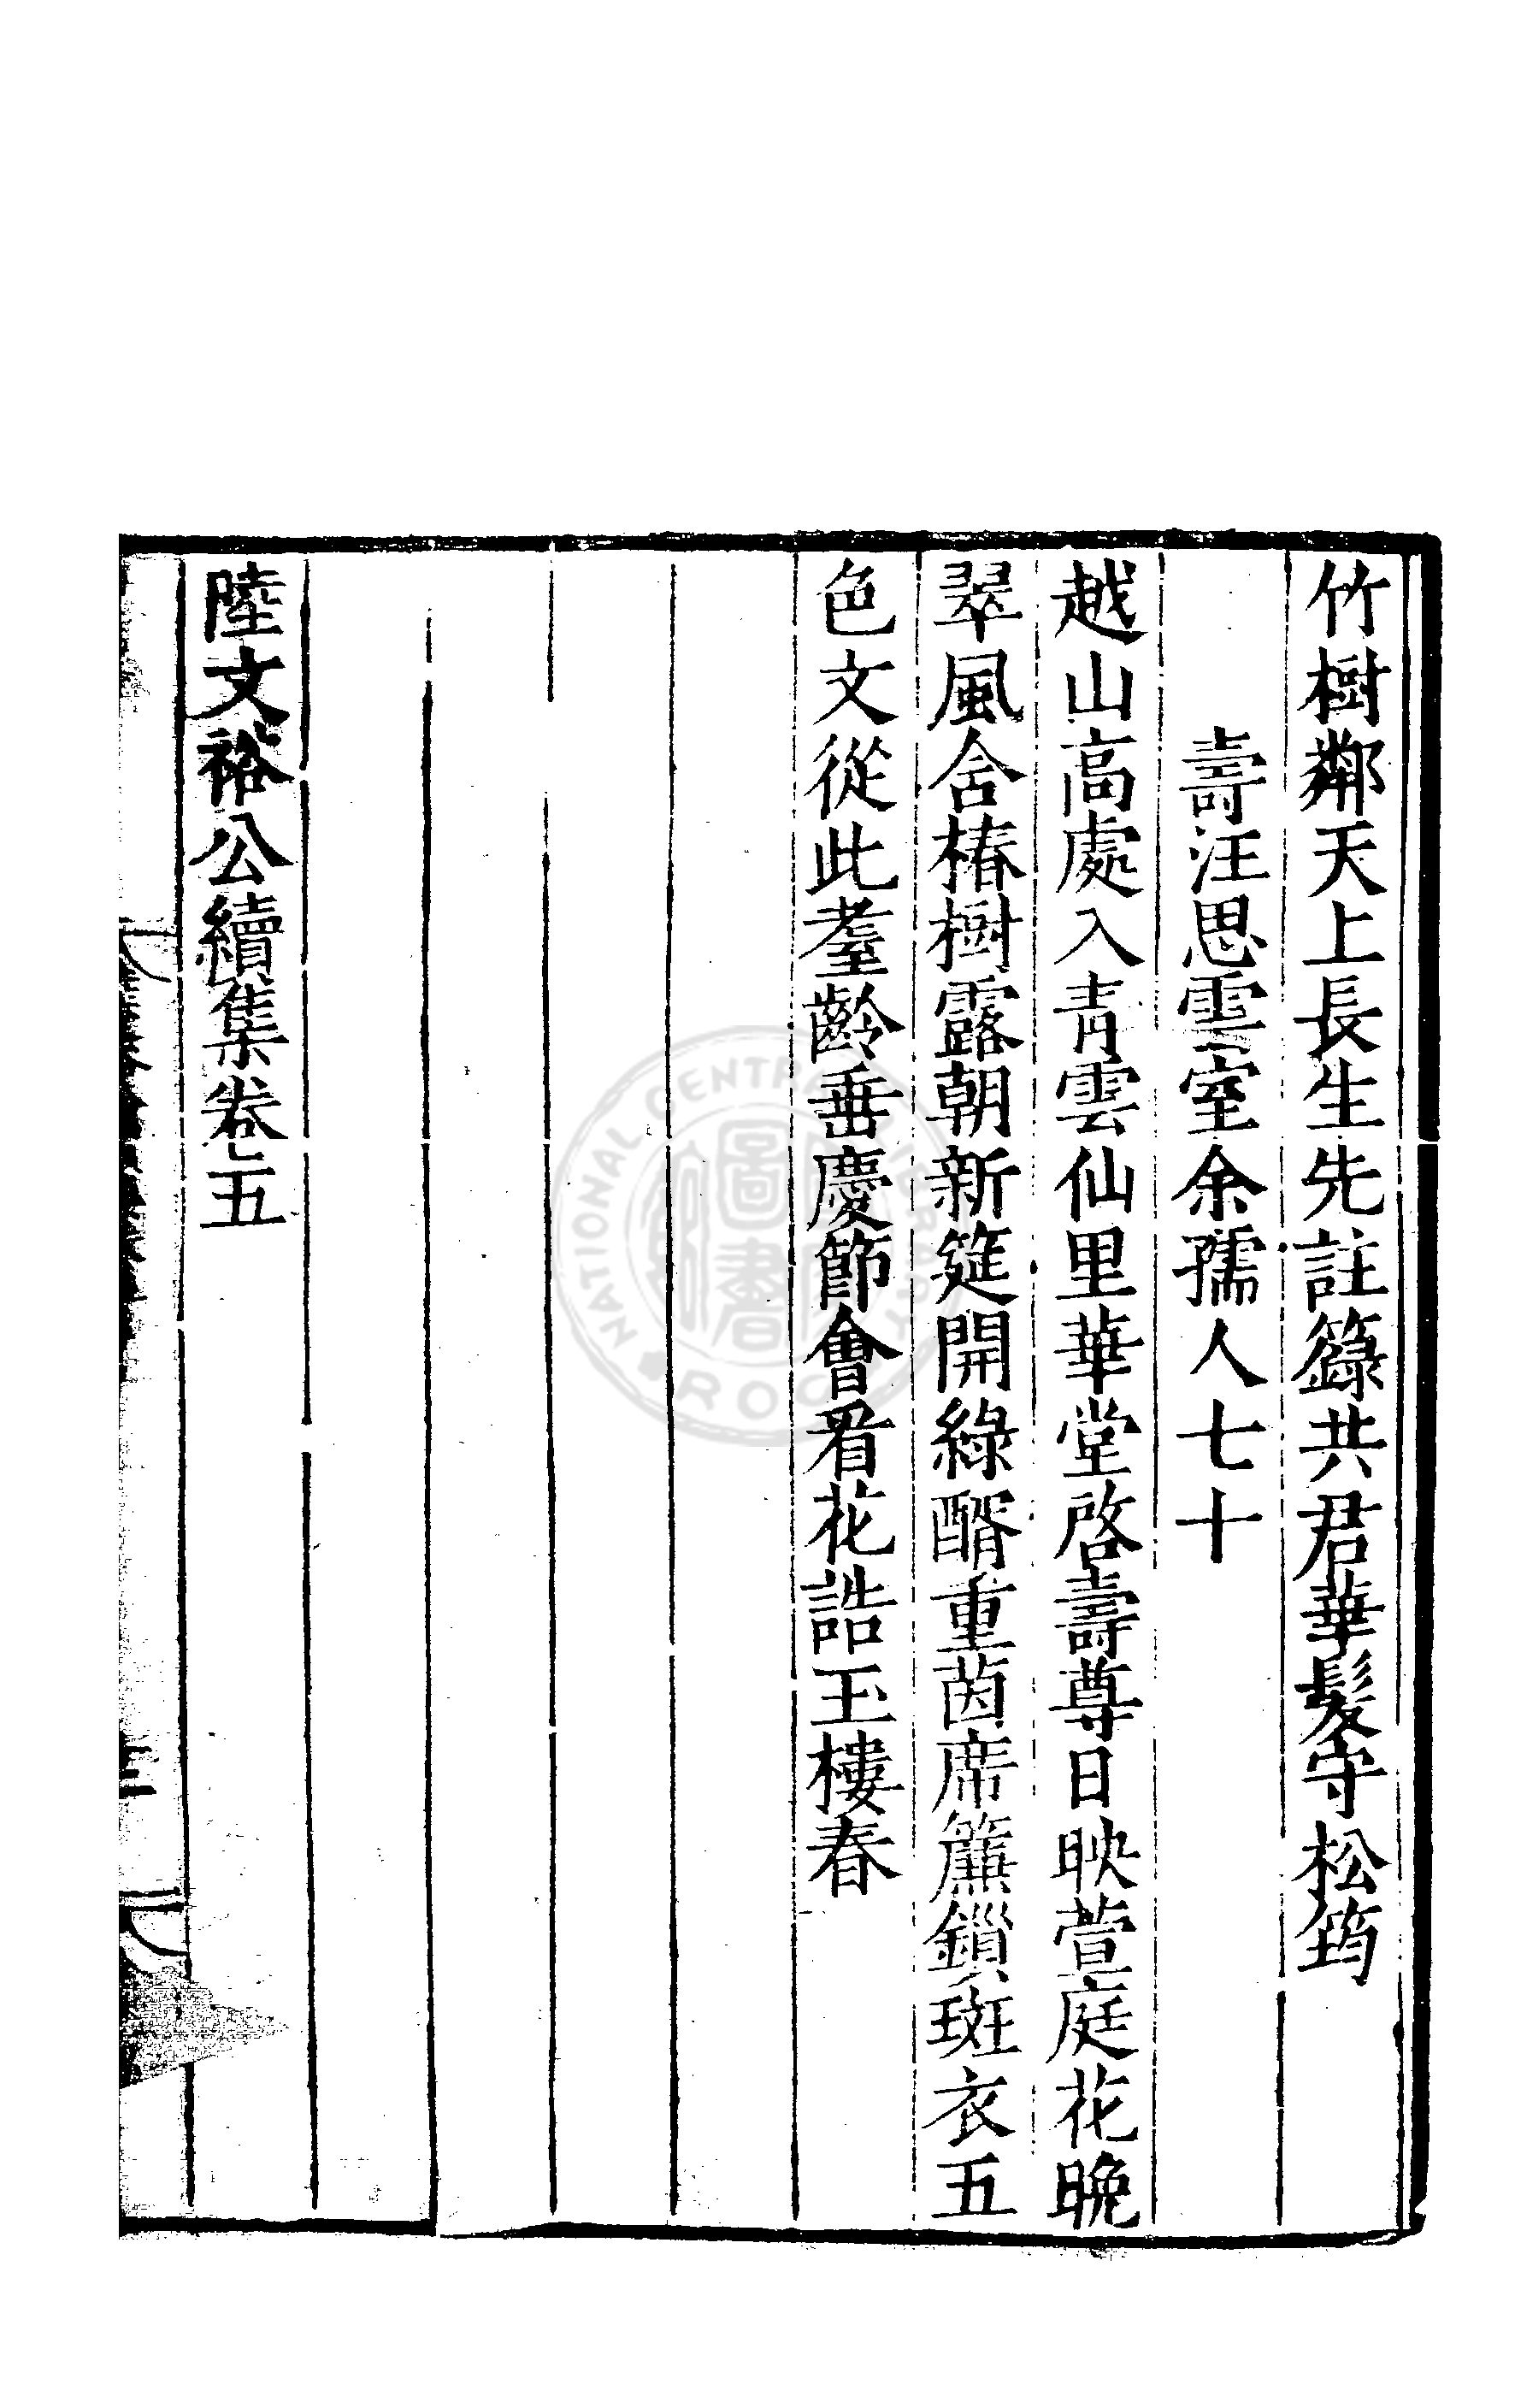 竹樹鄰天上長生先註籙共君華髮守松筠
壽汪思雲室余孺人七十
越山高處入青雲仙里華堂啓壽尊日映萱庭花晚
翠風含椿樹露朝新筵開綠醑重茵席簾鎖斑衣五
色文從此耋齡垂慶節會看花誥玉樓春
陸文裕公續集卷五
NATIONAL CENTRAL LIBRARY
ROC